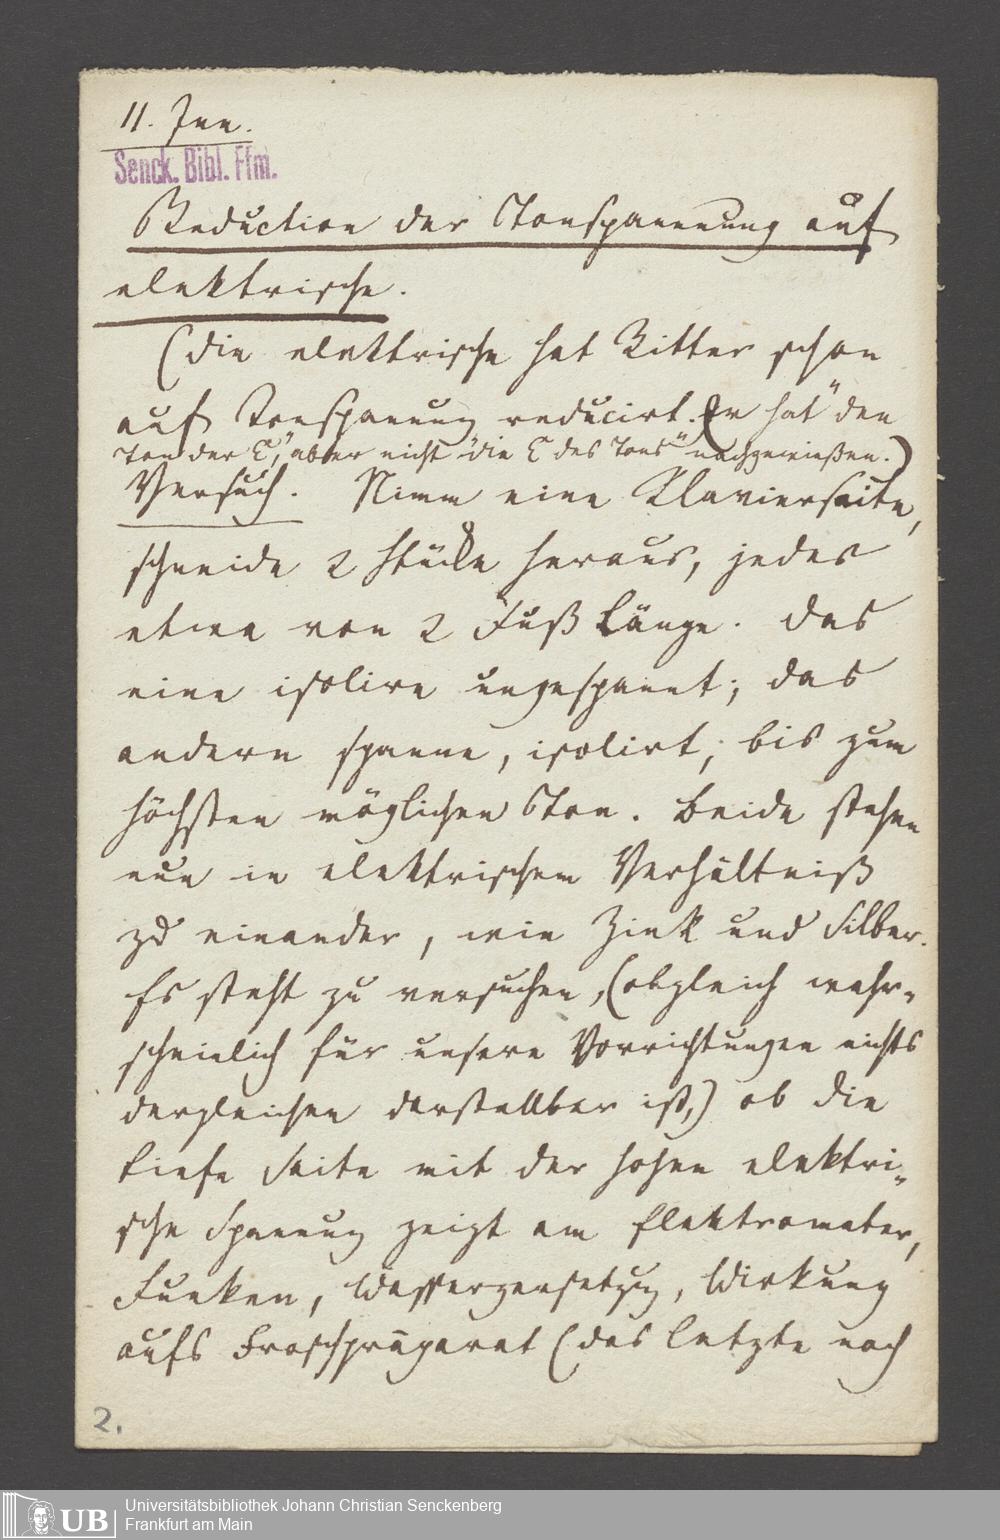 11. Jan.
Senck. Bibl. Ffm.
Reduction der Tonspannung auf
elektrische.
(die elektrische hat Ritter schon
auf Tonspanung reducirt. (Er hat "den
Ton der E", aber nicht "die E des Tons" nachgewießen.)
Versuch. Nimm eine Klaviersaite,
schneide 2 Stücke heraus, jedes
etwa von 2 Fuß Länge. das
eine isolire ungespannt; das
andere spanne, isolirt, bis zum
höchsten möglichen Ton. Beide stehen
nun in elektrischem Verhältniß
zu einander, wie Zink und Silber.
Es steht zu versuchen, (obgleich wahr-
scheinlich für unsere Vorrichtungen nichts
dergleichen darstellbar ist,) ob die
tiefe Saite mit der hohen elektri-
sche Spanung zeigt am Elektrometer,
Funken, Wasserzersetzug, Wirkung
aufs Froschpräparat (das letzte noch
2.
UB
Universitätsbibliothek Johann Christian Senckenberg
Frankfurt am Main